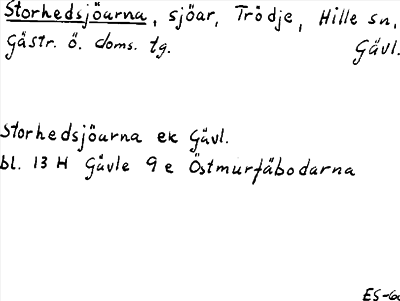 Storhedsjöarna, sjöar, Trödje, Hille sn,
Gästr. ö. doms. tg. Gävl.
Storhedsjöarna ek Gävl.
bl. 13 H Gävle 9 e Östmurfäbodarna